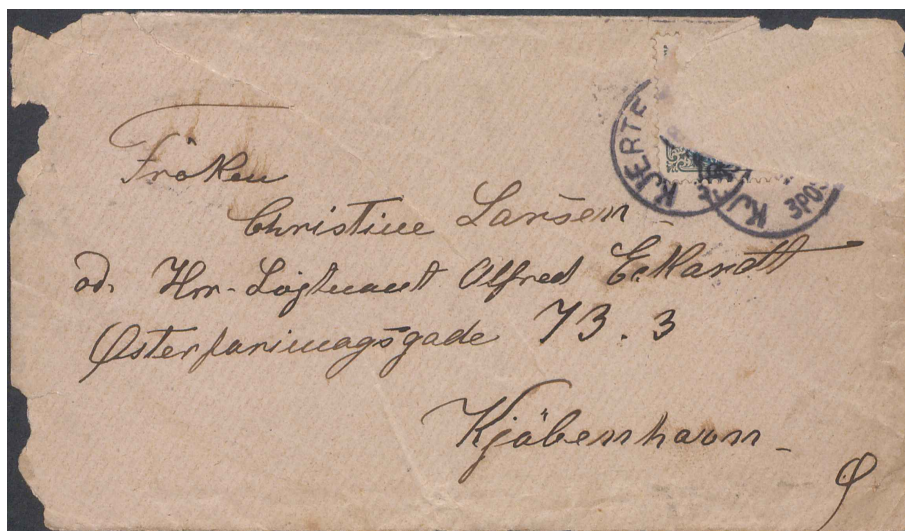 KJERTE
KJ
3POS
Fröken
Christine Larsen
ad. Hrr. Löjtnant Alfred Eckardt
Østerfarimagsgade 73.3
Kjöbenhavn
Ø